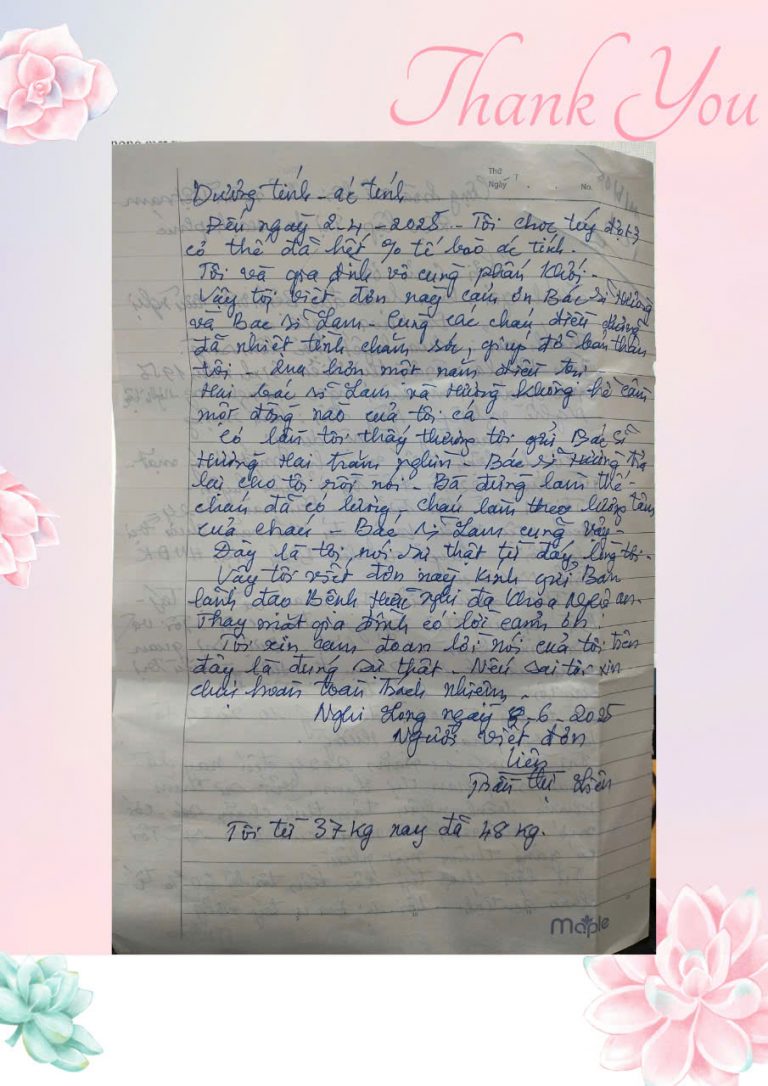 Thank You
Thứ
Ngày No.
Dương tính - ác tính
Đến ngày 2-4-2025 - Tôi chọc tủy đợt 3
có thể đã hết % tế bào ác tính.
Tôi và gia đình vô cùng phấn khởi.
Vậy tôi viết đơn này cảm ơn Bác sĩ Hương
và Bác sĩ Lam - Cùng các cháu điều dưỡng
đã nhiệt tình chăm sóc, giúp đỡ bản thân
tôi - qua hơn một năm điều trị
Hai bác sĩ Lam và Hương không hề cầm
một đồng nào của tôi cả -
Có lần tôi thấy thương tôi gửi Bác sĩ
Hương Hai trăm nghìn - Bác sĩ Hương trả
lại cho tôi rồi nói - Bà đừng làm thế -
cháu đã có lương - cháu làm theo lương tâm
của cháu - Bác sĩ Lam cũng vậy -
Đây là tôi nói sự thật từ đáy lòng tôi -
Vậy tôi viết đơn này kính gửi Ban
lãnh đạo Bệnh Hữu nghị đa khoa Nghệ an.
Thay mặt gia đình có lời cảm ơn.
Tôi xin cam đoan lời nói của tôi trên
đây là đúng sự thật - Nếu sai tôi xin
chịu hoàn toàn trách nhiệm -
Nghi Long ngày 8-6-2025
Người viết đơn
Liên
Trần thị Liên
Tôi từ 37 kg nay đã 48 kg.
maple